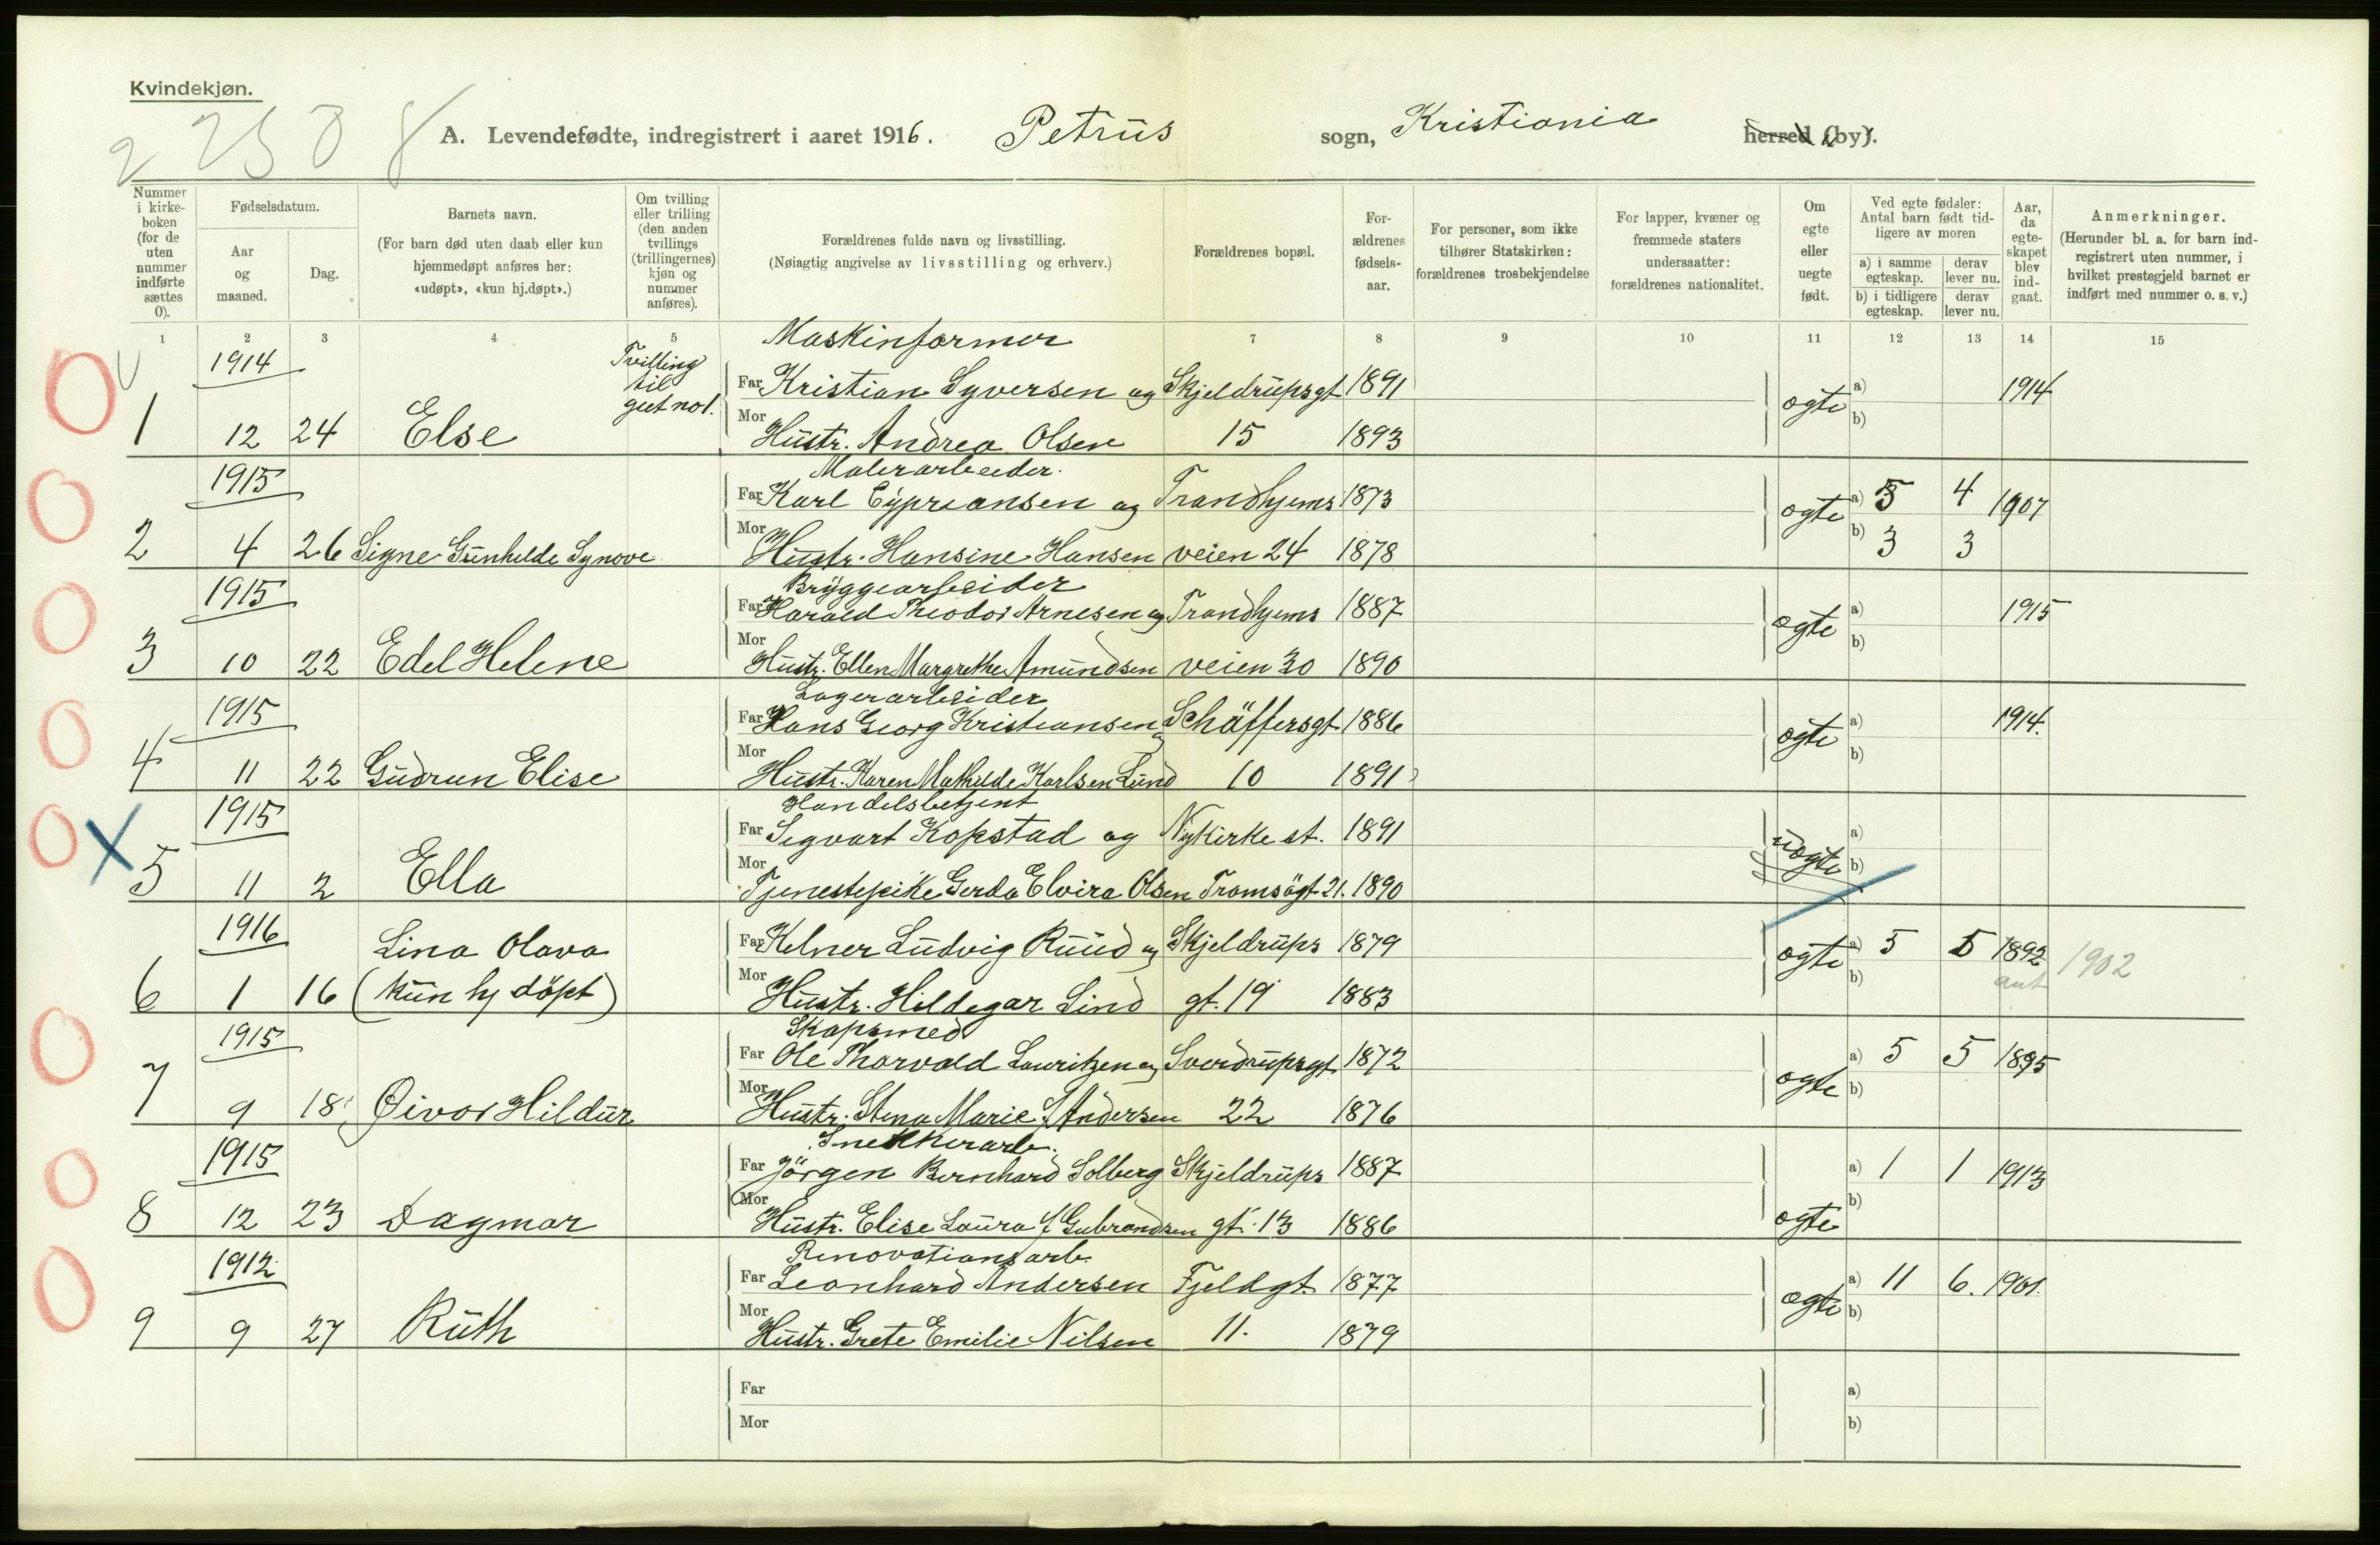 Kvindekjøn.
A. Levendefødte, indregistrert i aaret 1916. Petrus sogn, Kristiania herred (by).
Nummer i kirke-boken (for de uten nummer indførte sættes 0).
Fødselsdatum.
Aar og maaned.
Dag.
Barnets navn.
(For barn død uten daab eller kun hjemmedøpt anføres her: «udøpt», «kun hj.døpt».)
Om tvilling eller trilling (den anden tvillings (trillingernes) kjøn og nummer anføres).
Forældrenes fulde navn og livsstilling.
(Nøiagtig angivelse av livsstilling og erhverv.)
Forældrenes bopæl.
For-ældrenes fødsels-aar.
For personer, som ikke tilhører Statskirken: forældrenes trosbekjendelse
For lapper, kvæner og fremmede staters undersaatter: forældrenes nationalitet.
Om egte eller uegte født.
Ved egte fødsler: Antal barn født tid-ligere av moren
a) i samme egteskap. derav lever nu.
b) i tidligere egteskap. derav lever nu.
Aar, da egte-skapet blev ind-gaat.
Anmerkninger.
(Herunder bl. a. for barn ind-registrert uten nummer, i hvilket prestegjeld barnet er indført med nummer o. s. v.)
1 2 3 4 5 7 8 9 10 11 12 13 14 15
1914 Tvilling til gut no 1. Maskinformer
Far Kristian Syversen og Skjeldrupsgt 1891 a) 1914
1 12 24 Else Mor Hustr. Andrea Olsen 15 1893 ogte b)
1915 Malerarbeider.
Far Karl Cypriansen og Trondhjems 1873 a) 5 4 1907
2 4 26 Signe Gunhilde Synove Mor Hustr. Hansine Hansen veien 24 1878 ogte b) 3 3
1915 Bryggearbeider
Far Harald Theodor Arnesen og Trondhjems 1887 a) 1915
3 10 22 Edel Helene Mor Hustr. Ellen Margrethe Amundsen veien 30 1890 ogte b)
1915 Lagerarbeider
Far Hans Georg Kristiansen og Schäffersgt. 1886 a) 1914.
4 11 22 Gudrun Elise Mor Hustr. Karen Mathilde Karlsen Lund 10 1891 ogte b)
1915 Handelsbetjent
Far Sigvart Kopstad og Nykirke st. 1891 a)
5 11 2 Ella Mor Tjenestepike Gerda Elvira Olsen Tromsögt 21. 1890 uogte b)
1916 Lina Olava Far Kelner Ludvig Ruud og Skjeldrups 1879 a) 5 5 1892 1902
6 1 16 (kun hj döpt) Mor Hustr. Hildegar Lind gt. 19 1883 ogte b) ant
1915 Skapsmed
Far Ole Thorvald Lauritzen og Sverdrupsgt 1872 a) 5 5 1895
7 9 18 Øivor Hildur Mor Hustr. Stena Marie f Andersen 22 1876 ogte b)
1915 Snekkerarb.
Far Jörgen Bernhard Solberg Skjeldrups 1887 a) 1 1 1913
8 12 23 Dagmar Mor Hustr. Elise Laura f Gubrandsen gt. 13 1886 ogte b)
1912 Renovationsarb.
Far Leonhard Andersen Fjeldgt. 1877 a) 11 6. 1901.
9 9 27 Ruth Mor Hustr. Grete Emilie Nilsen 11. 1879 ogte b)
Far a)
Mor b)